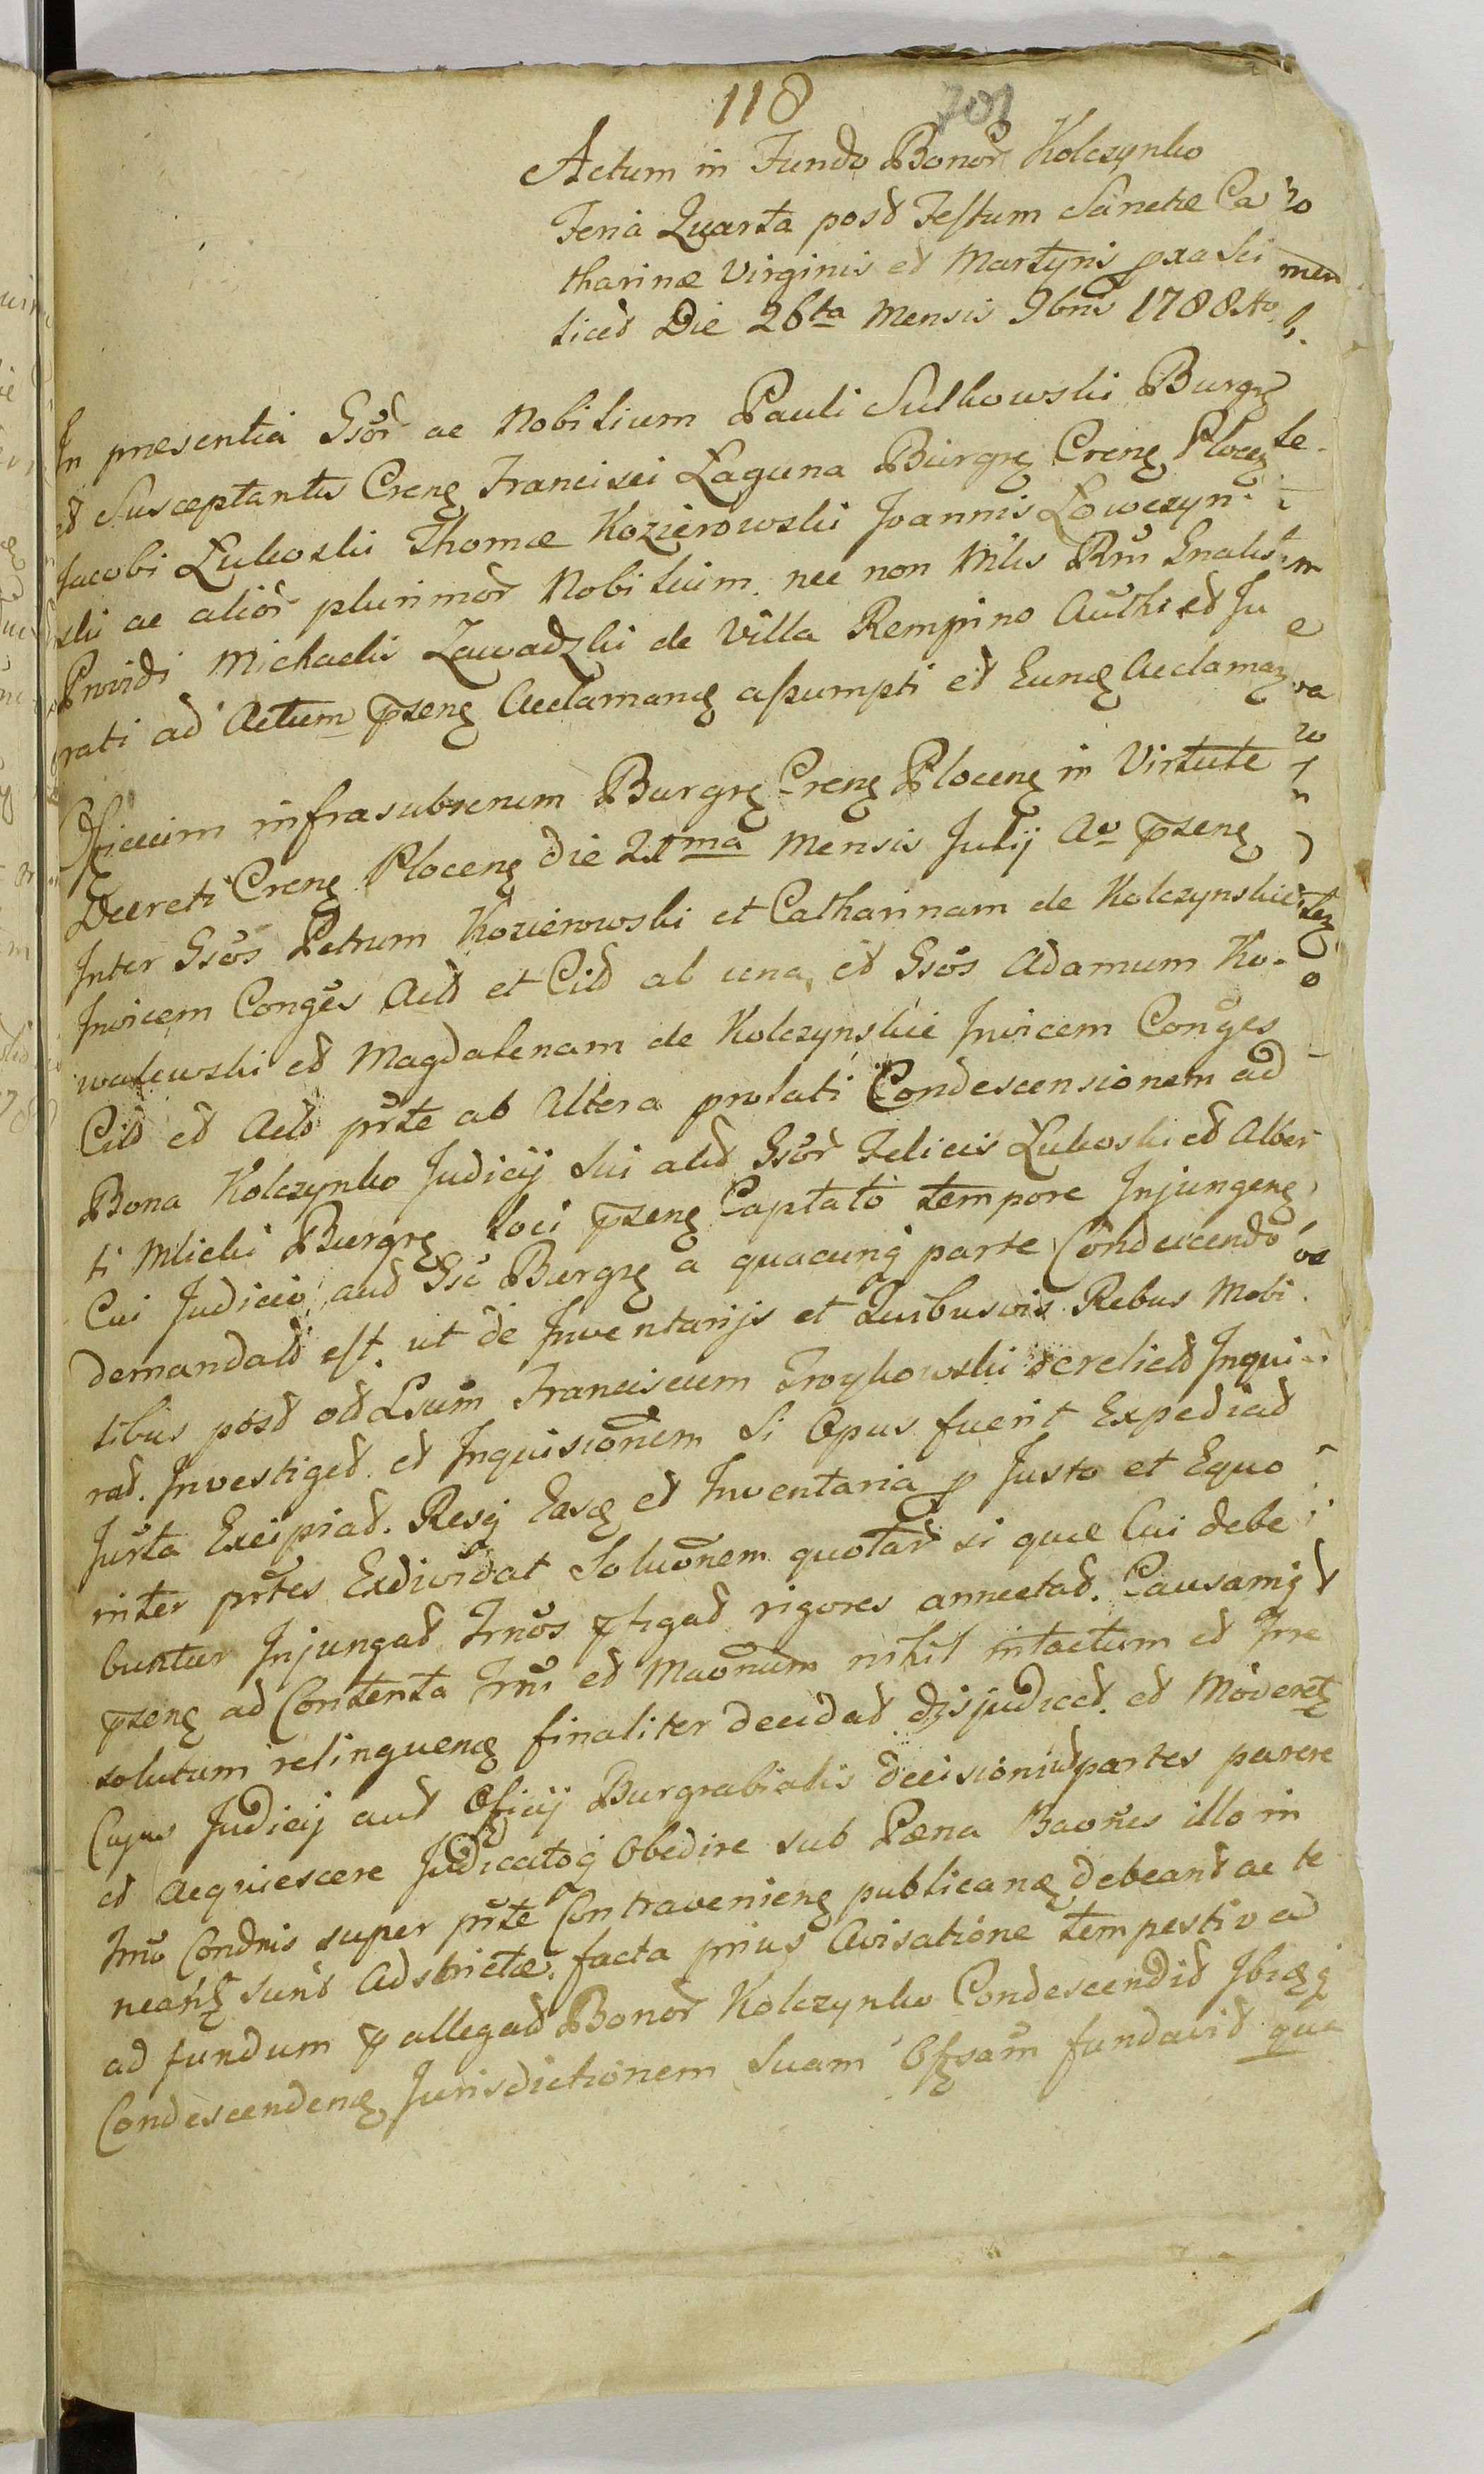 118 701
Actum in Fundo Bonor Kolczynko
Feria Quarta post Festum Sanctæ Ca
tharinæ Virginis et Martyris pxa Sci
licet Die 26ta Mensis 9bris 1788
In præsentia Gsor ac Nobilium Pauli Sulkowski Burgz
et Susceptantis Crenz Francisci Łaguna Burgrz Crenz Plocenz
Jacobi Łukoski Thomæ Kozierowski Joannis Łowczyn
ski ac alior plurimor Nobilium nec non Mlis Rni Gnalis
Providi Michaelis Zawadzki de Villa Rempino Authi et Ju
rati ad Actum pzenz Acclamanz assumpti et Eunz Acclamanz
Officium infrasubrenum Burgrz Crenz Plocenz in Virtute
Decreti Crenz Plocenz die 21ma Mensis Julij Ao pzenz
Inter Gsos Petrum Kozierowski et Catharinam de Kolczynskie
Invicem Conges Act et Cit ab una, et Gsos Adamum Ko-
walewski et Magdalenam de Kolczynskie Invicem Conges
Cit et Act prte ab Altera prolati Condescensionem ad
Bona Kolczynko Judicij Sui aut Gsor Felicis Łukoski et Alber
ti Mlicki Burgrz loci pzenz Captato tempore Injungenz
Cui Judicio aut Gsi Burgrz a quacunq parte Condescendo
demandat est. ut de Inventarijs et Quibusvis Rebus Mobi
libus post od Lsum Franciscum Troykowski derelict Inqui
rat. Investiget. et Inquisionem Si Opus fuerit Expediat
Jurta Excipiat. Resq Easq et Inventaria p Justo et Equo
inter prtes Exdividat Soluonem quotar si quæ Cui debe
buntur Injungat Trnos pfigat rigores annectat. Causamq
pzenz ad Contenta Trni et Maonum nihil intactum et Irre
solutum relinquenz finaliter decidat disjudicet. et Moderetz
Cujus Judicij aut Officij Burgrabialis decisioni partes parere
et acquiescere Judicatoq Obedire sub Pæna Baones illo in
Trno Condnis super prte Contravenienz publicanz debeant ac te
neantz sunt Adstrictæ. facta prius Avisatione tempestiva
ad fundum p allegat Bonor Kolczynko Condescendit Ibiqz
Condescendenz Jurisdictionem Suam Offsam fundavit qua